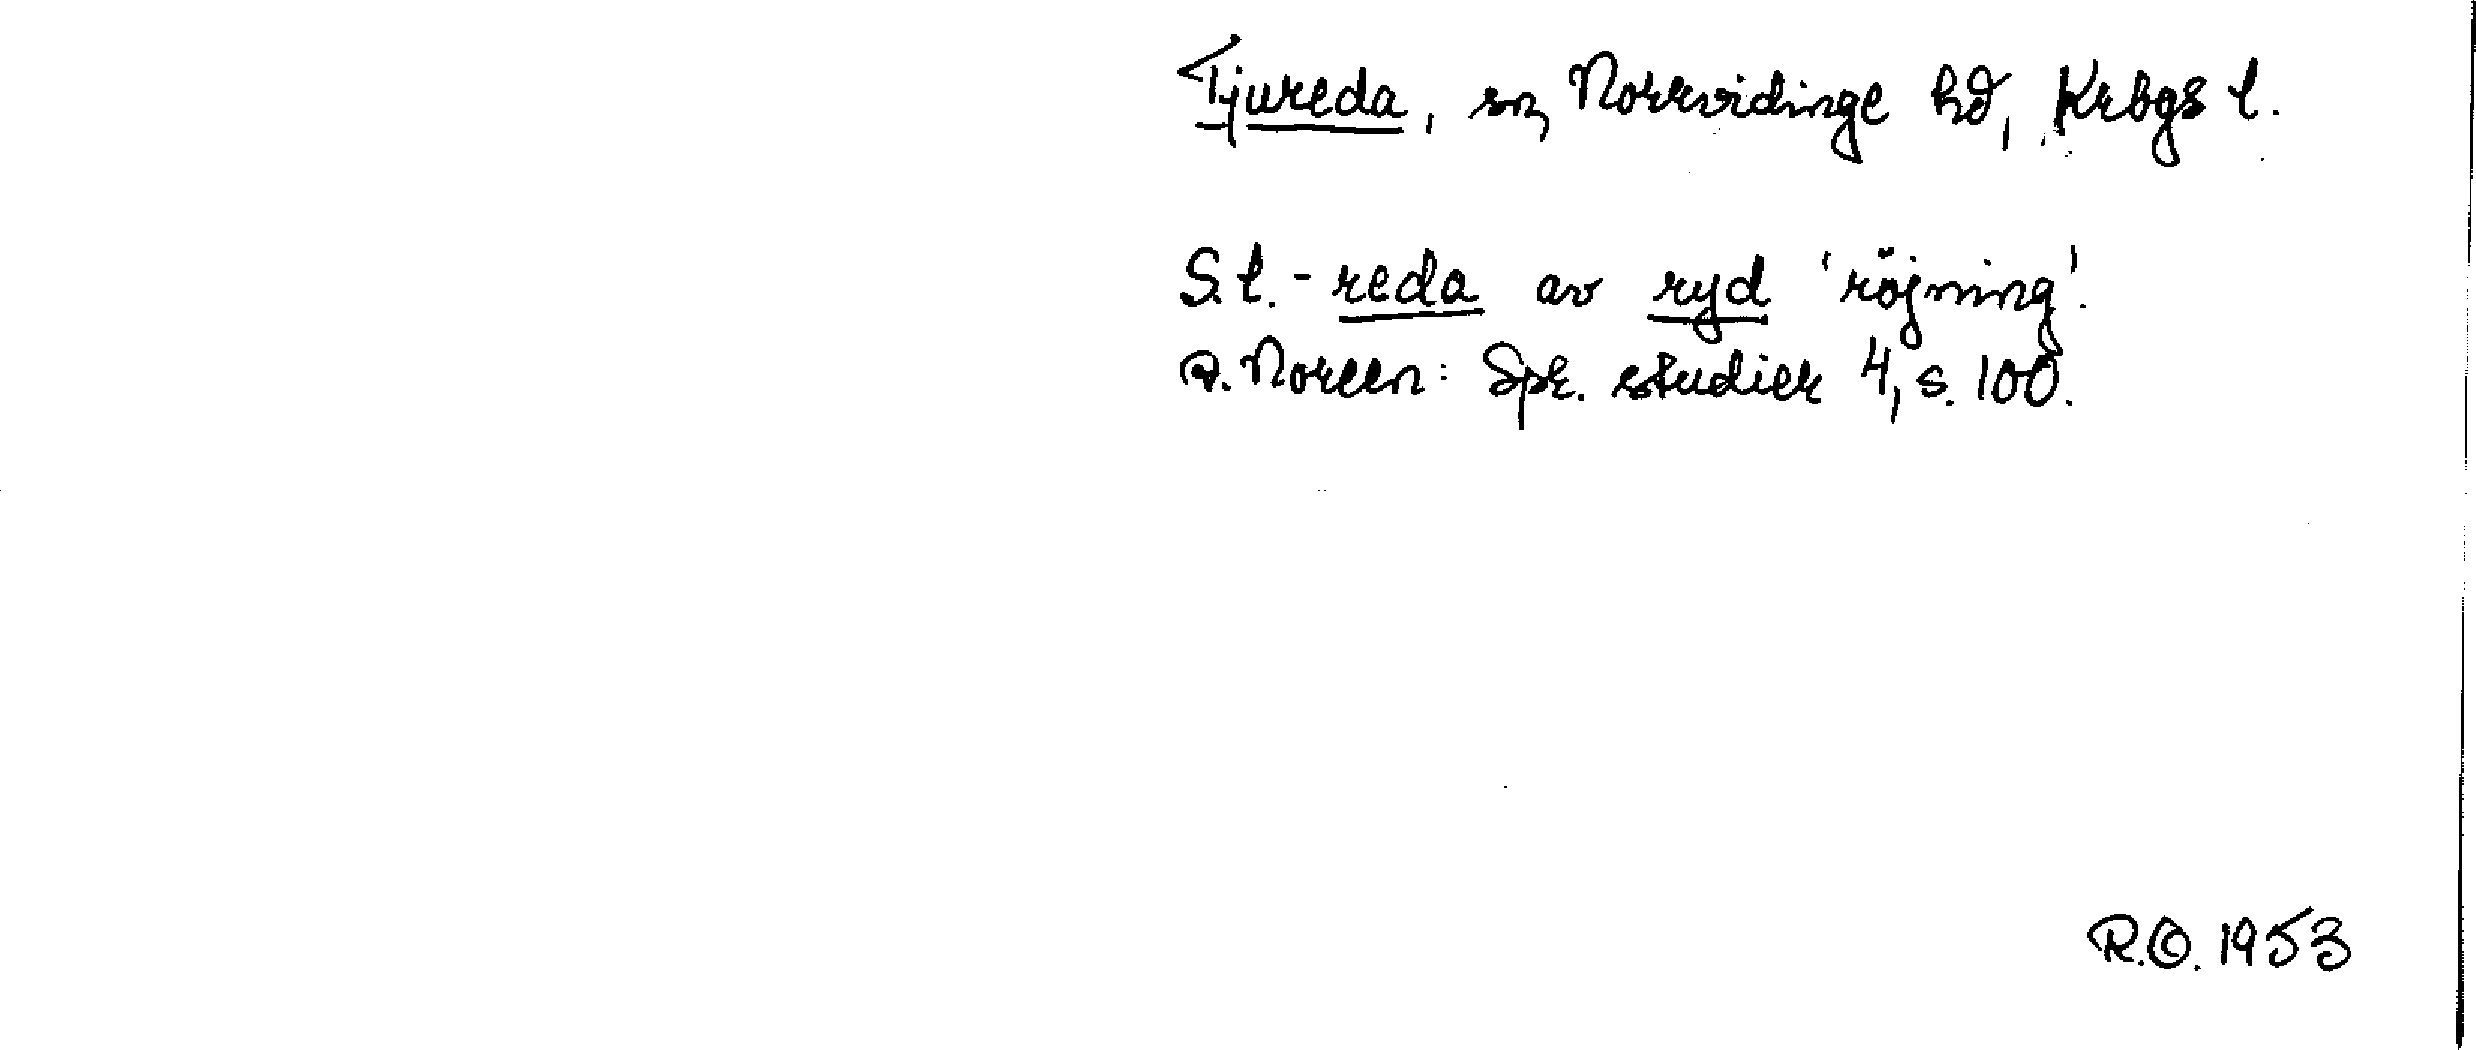 Tjureda, sn, Norrvidinge hd, Krbgs l.
S.l. -reda av ryd 'röjning'.
A. Noreen: Spr. studier 4, s. 100.
R.O. 1953